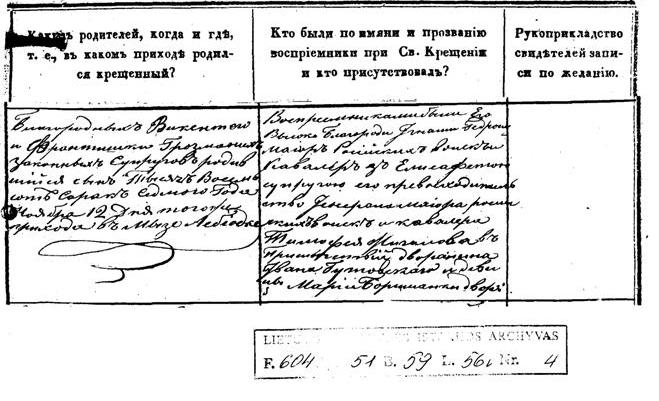 Какихъ родителей, когда и гдѣ,
т. е., въ какомъ приходѣ родил-
ся крещенный?
Кто были по имяни и прозванію
воспріемники при Св. Крещеніи
и кто присутствовалъ?
Рукоприкладство
свидѣтелей запи-
си по желанію.
Благородныхъ Викентего
и Франтишки
законныхъ Супруговъ родив
шійся сынъ Тысяч Восемь
сотъ Сорокъ Седмого Года
Ноября 12 Дня того же
прихода въ Мызѣ
Воспріемниками были Его
Высоко Благородіе Игнатій
маіоръ Россійскихъ Войскъ и
Кавалеръ съ Елисаветою
супругою его превосходитель
ства Генерала маіора россій
скихъ войскъ и кавалера
Тимофея въ
присутствіи дворянина
Ивана Гутовскаго и дѣви
цы Маріи
LIETUVOS ARCHYVAS
F. 604 51 B. 59 L. 56 Nr. 4